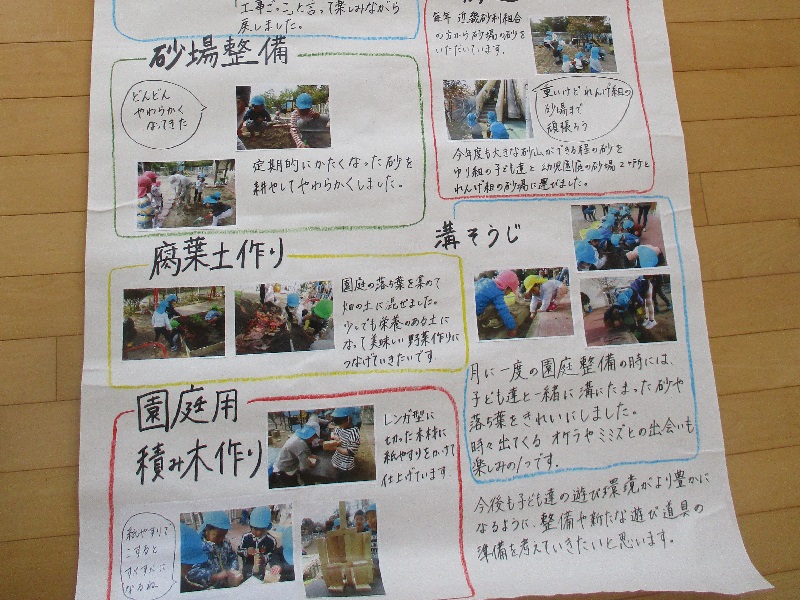 「工事ごっこ」と言って楽しみながら
戻しました。
砂場整備
どんどん
やわらかく
なってきた
定期的にかたくなった砂を
耕やしてやわらかくしました。
腐葉土作り
園庭の落ち葉を集めて
畑の土に混ぜました。
少しでも栄養のある土に
なって美味しい野菜作りに
つなげていきたいです。
園庭用
積み木作り
レンガ型に
切った木材に
紙やすりをかけて
仕上げています。
紙やすりで
こすると
すべすべに
なるね
毎年 近畿砂利組合
の方から砂場の砂を
いただいています。
重いけどれんげ組の
砂場まで
頑張ろう
今年度も大きな砂山ができる程の砂を
ゆり組の子ども達と幼児園庭の砂場2ヶ所と
れんげ組の砂場に運びました。
溝そうじ
月に一度の園庭整備の時には、
子ども達と一緒に溝にたまった砂や
落ち葉をきれいにしました。
時々出てくるオケラやミミズとの出会いも
楽しみの1つです。
今後も子ども達の遊び環境がより豊かに
なるように、整備や新たな遊び道具の
準備を考えていきたいと思います。